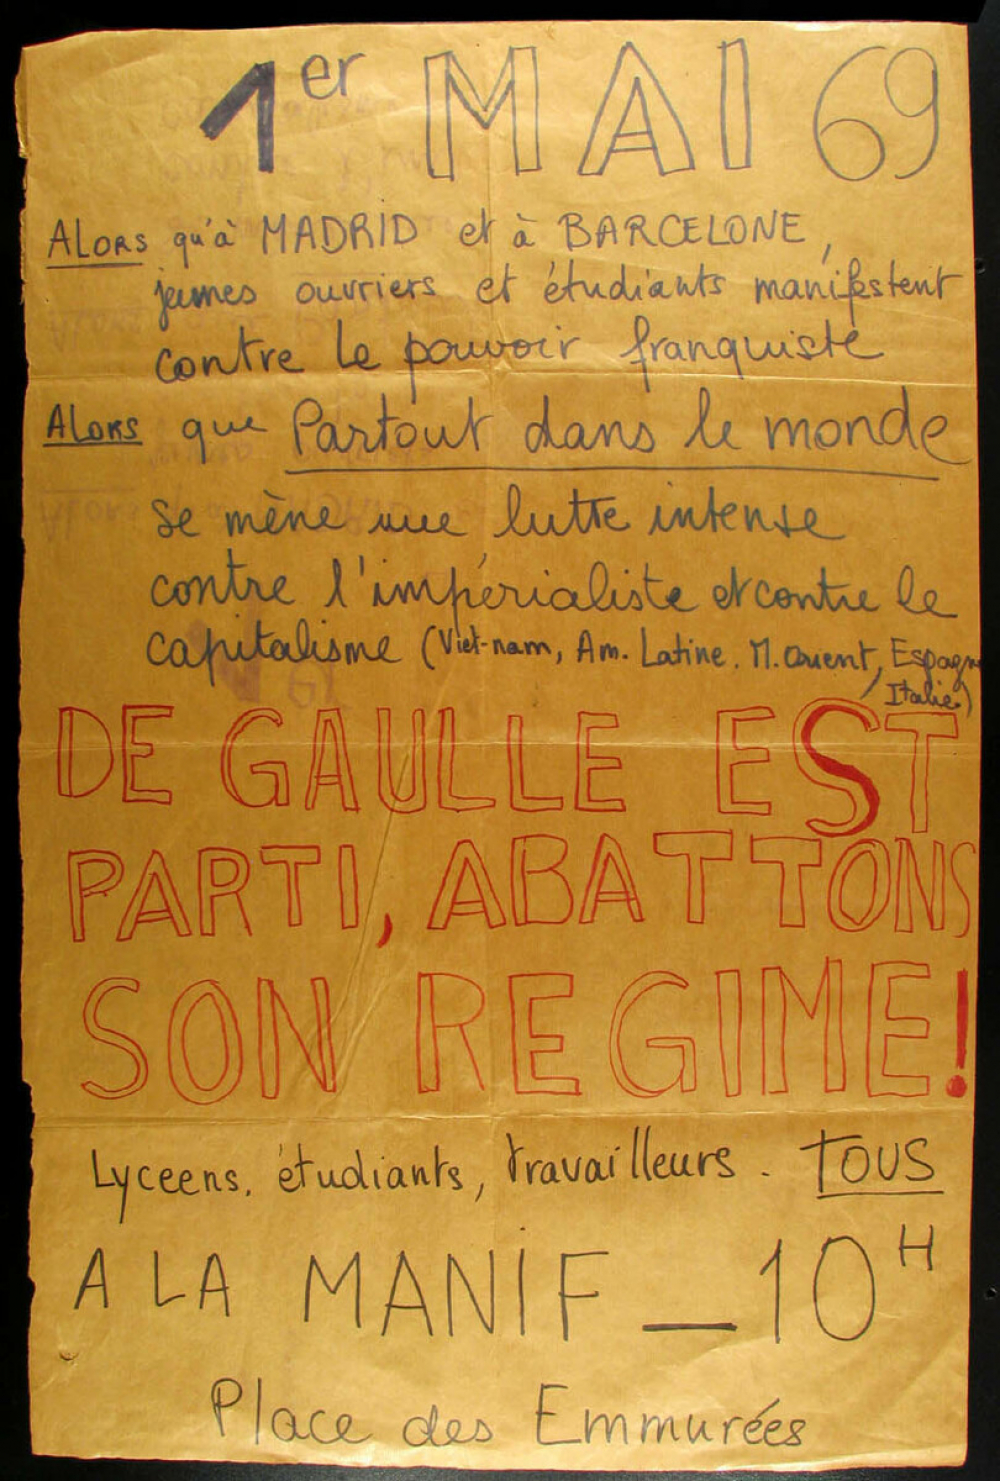 1er MAI 69
ALORS qu'à MADRID et à BARCELONE,
jeunes ouvriers et étudiants manifestent
contre le pouvoir franquiste
ALORS que Partout dans le monde
se mène une lutte intense
contre l'impérialiste et contre le
capitalisme (Viet-nam, Am. Latine. M. Orient, Espagne
Italie)
DE GAULLE EST
PARTI, ABATTONS
SON REGIME!
Lyceens, étudiants, travailleurs. TOUS
A LA MANIF _ 10H
Place des Emmurées